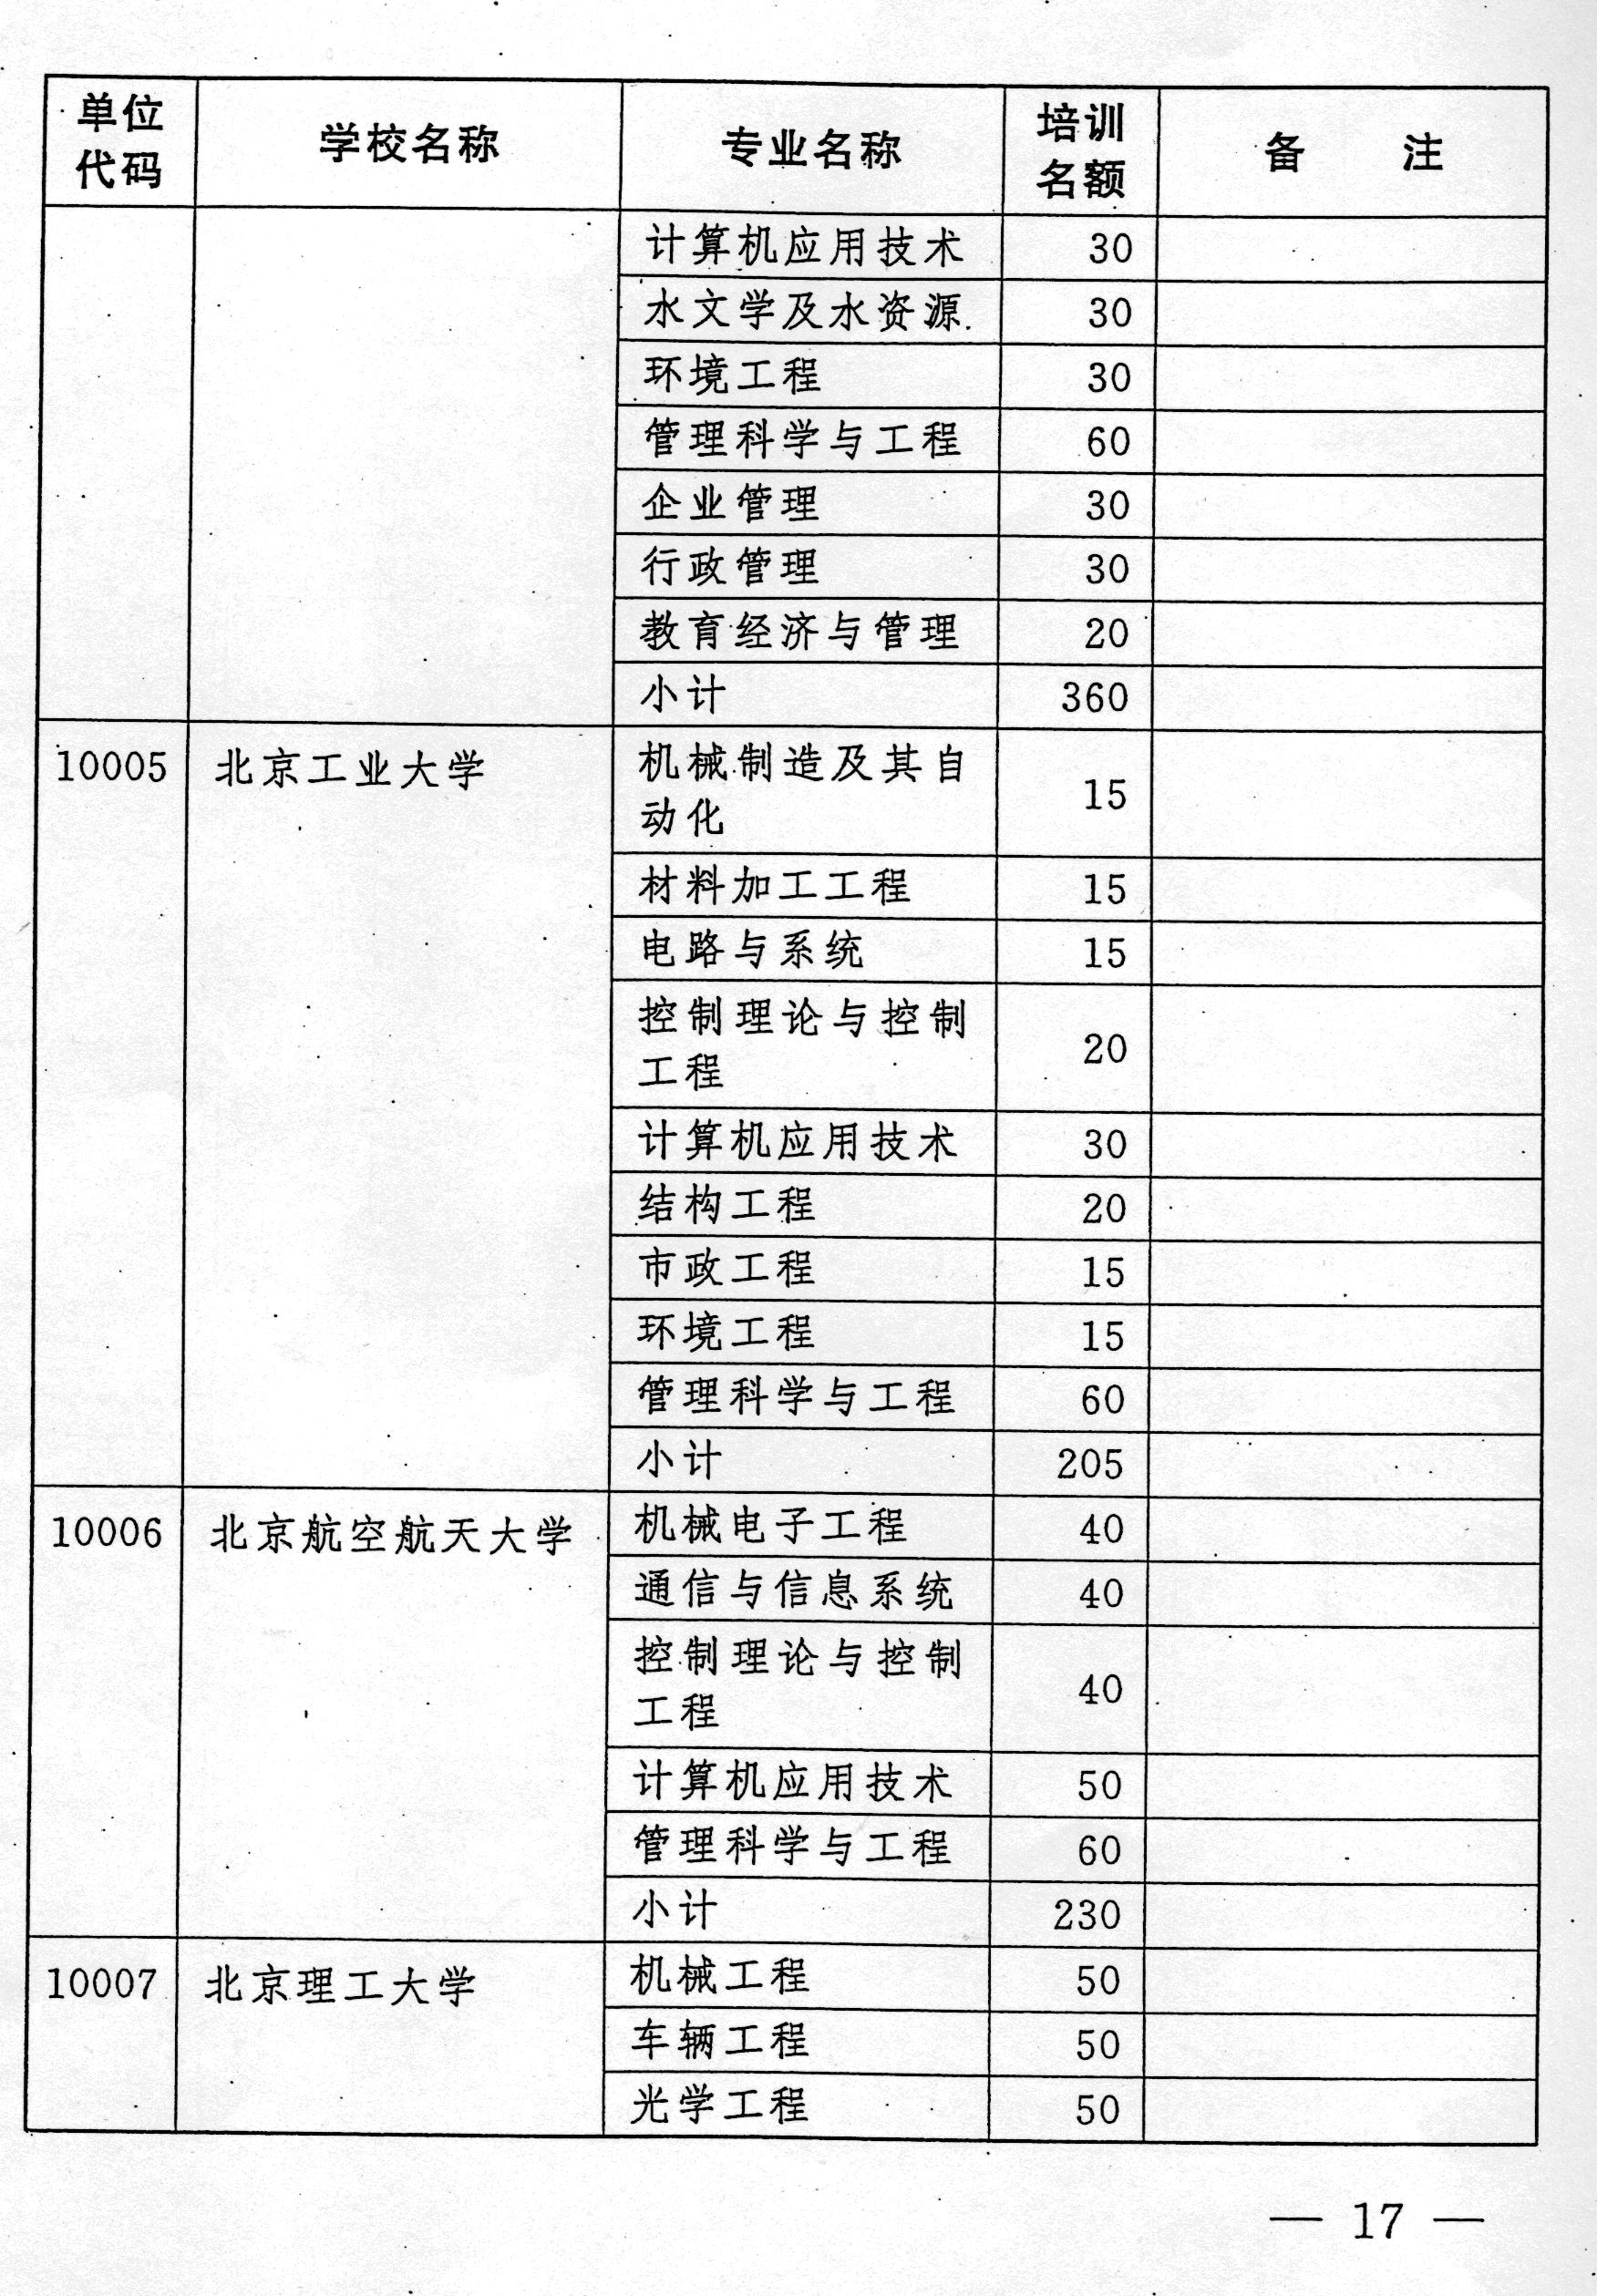 单位代码 学校名称 专业名称 培训名额 备 注
计算机应用技术 30
水文学及水资源 30
环境工程 30
管理科学与工程 60
企业管理 30
行政管理 30
教育经济与管理 20
小计 360
10005 北京工业大学 机械制造及其自
动化 15
材料加工工程 15
电路与系统 15
控制理论与控制
工程 20
计算机应用技术 30
结构工程 20
市政工程 15
环境工程 15
管理科学与工程 60
小计 205
10006 北京航空航天大学 机械电子工程 40
通信与信息系统 40
控制理论与控制
工程 40
计算机应用技术 50
管理科学与工程 60
小计 230
10007 北京理工大学 机械工程 50
车辆工程 50
光学工程 50
— 17 —